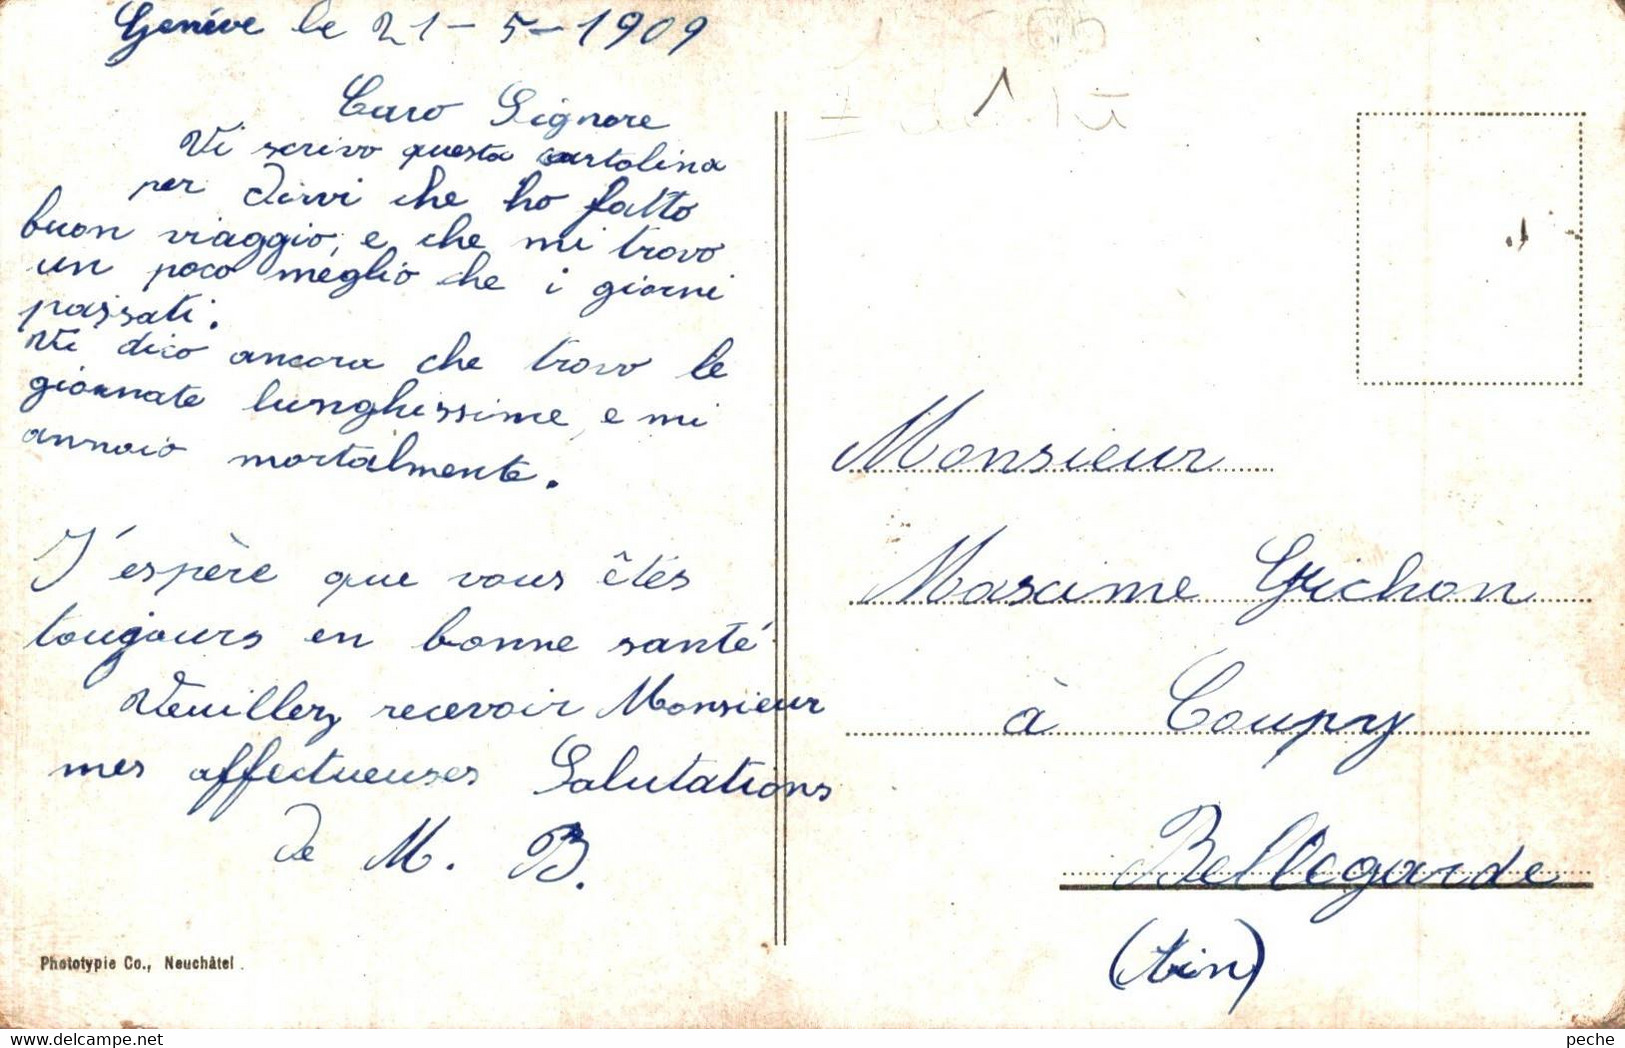 Genève le 21-5-1909
Caro Signore
Vi scrivo questa cartolina
per dirvi che ho fatto
buon viaggio, e che mi trovo
un poco meglio che i giorni
passati.
Vi dico ancora che trovo le
giornate lunghissime e mi
annoio mortalmente.
J'espère que vous êtes
toujours en bonne santé
Veuillez recevoir Monsieur
mes affectueuses Salutations
de M. B.
Phototypie Co., Neuchâtel.
Monsieur
Maxime Grichon
à Coupy
Bellegarde
(Ain)
peche